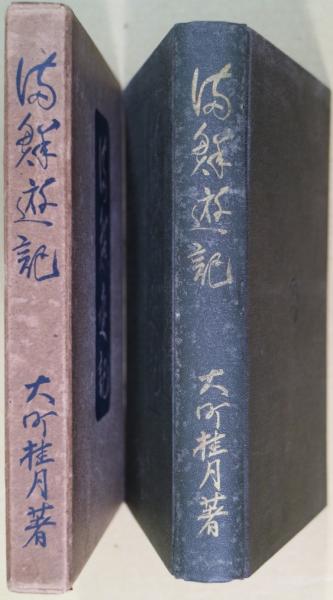 満鮮遊記
大町桂月著
満鮮遊記
満鮮遊記
大町桂月著